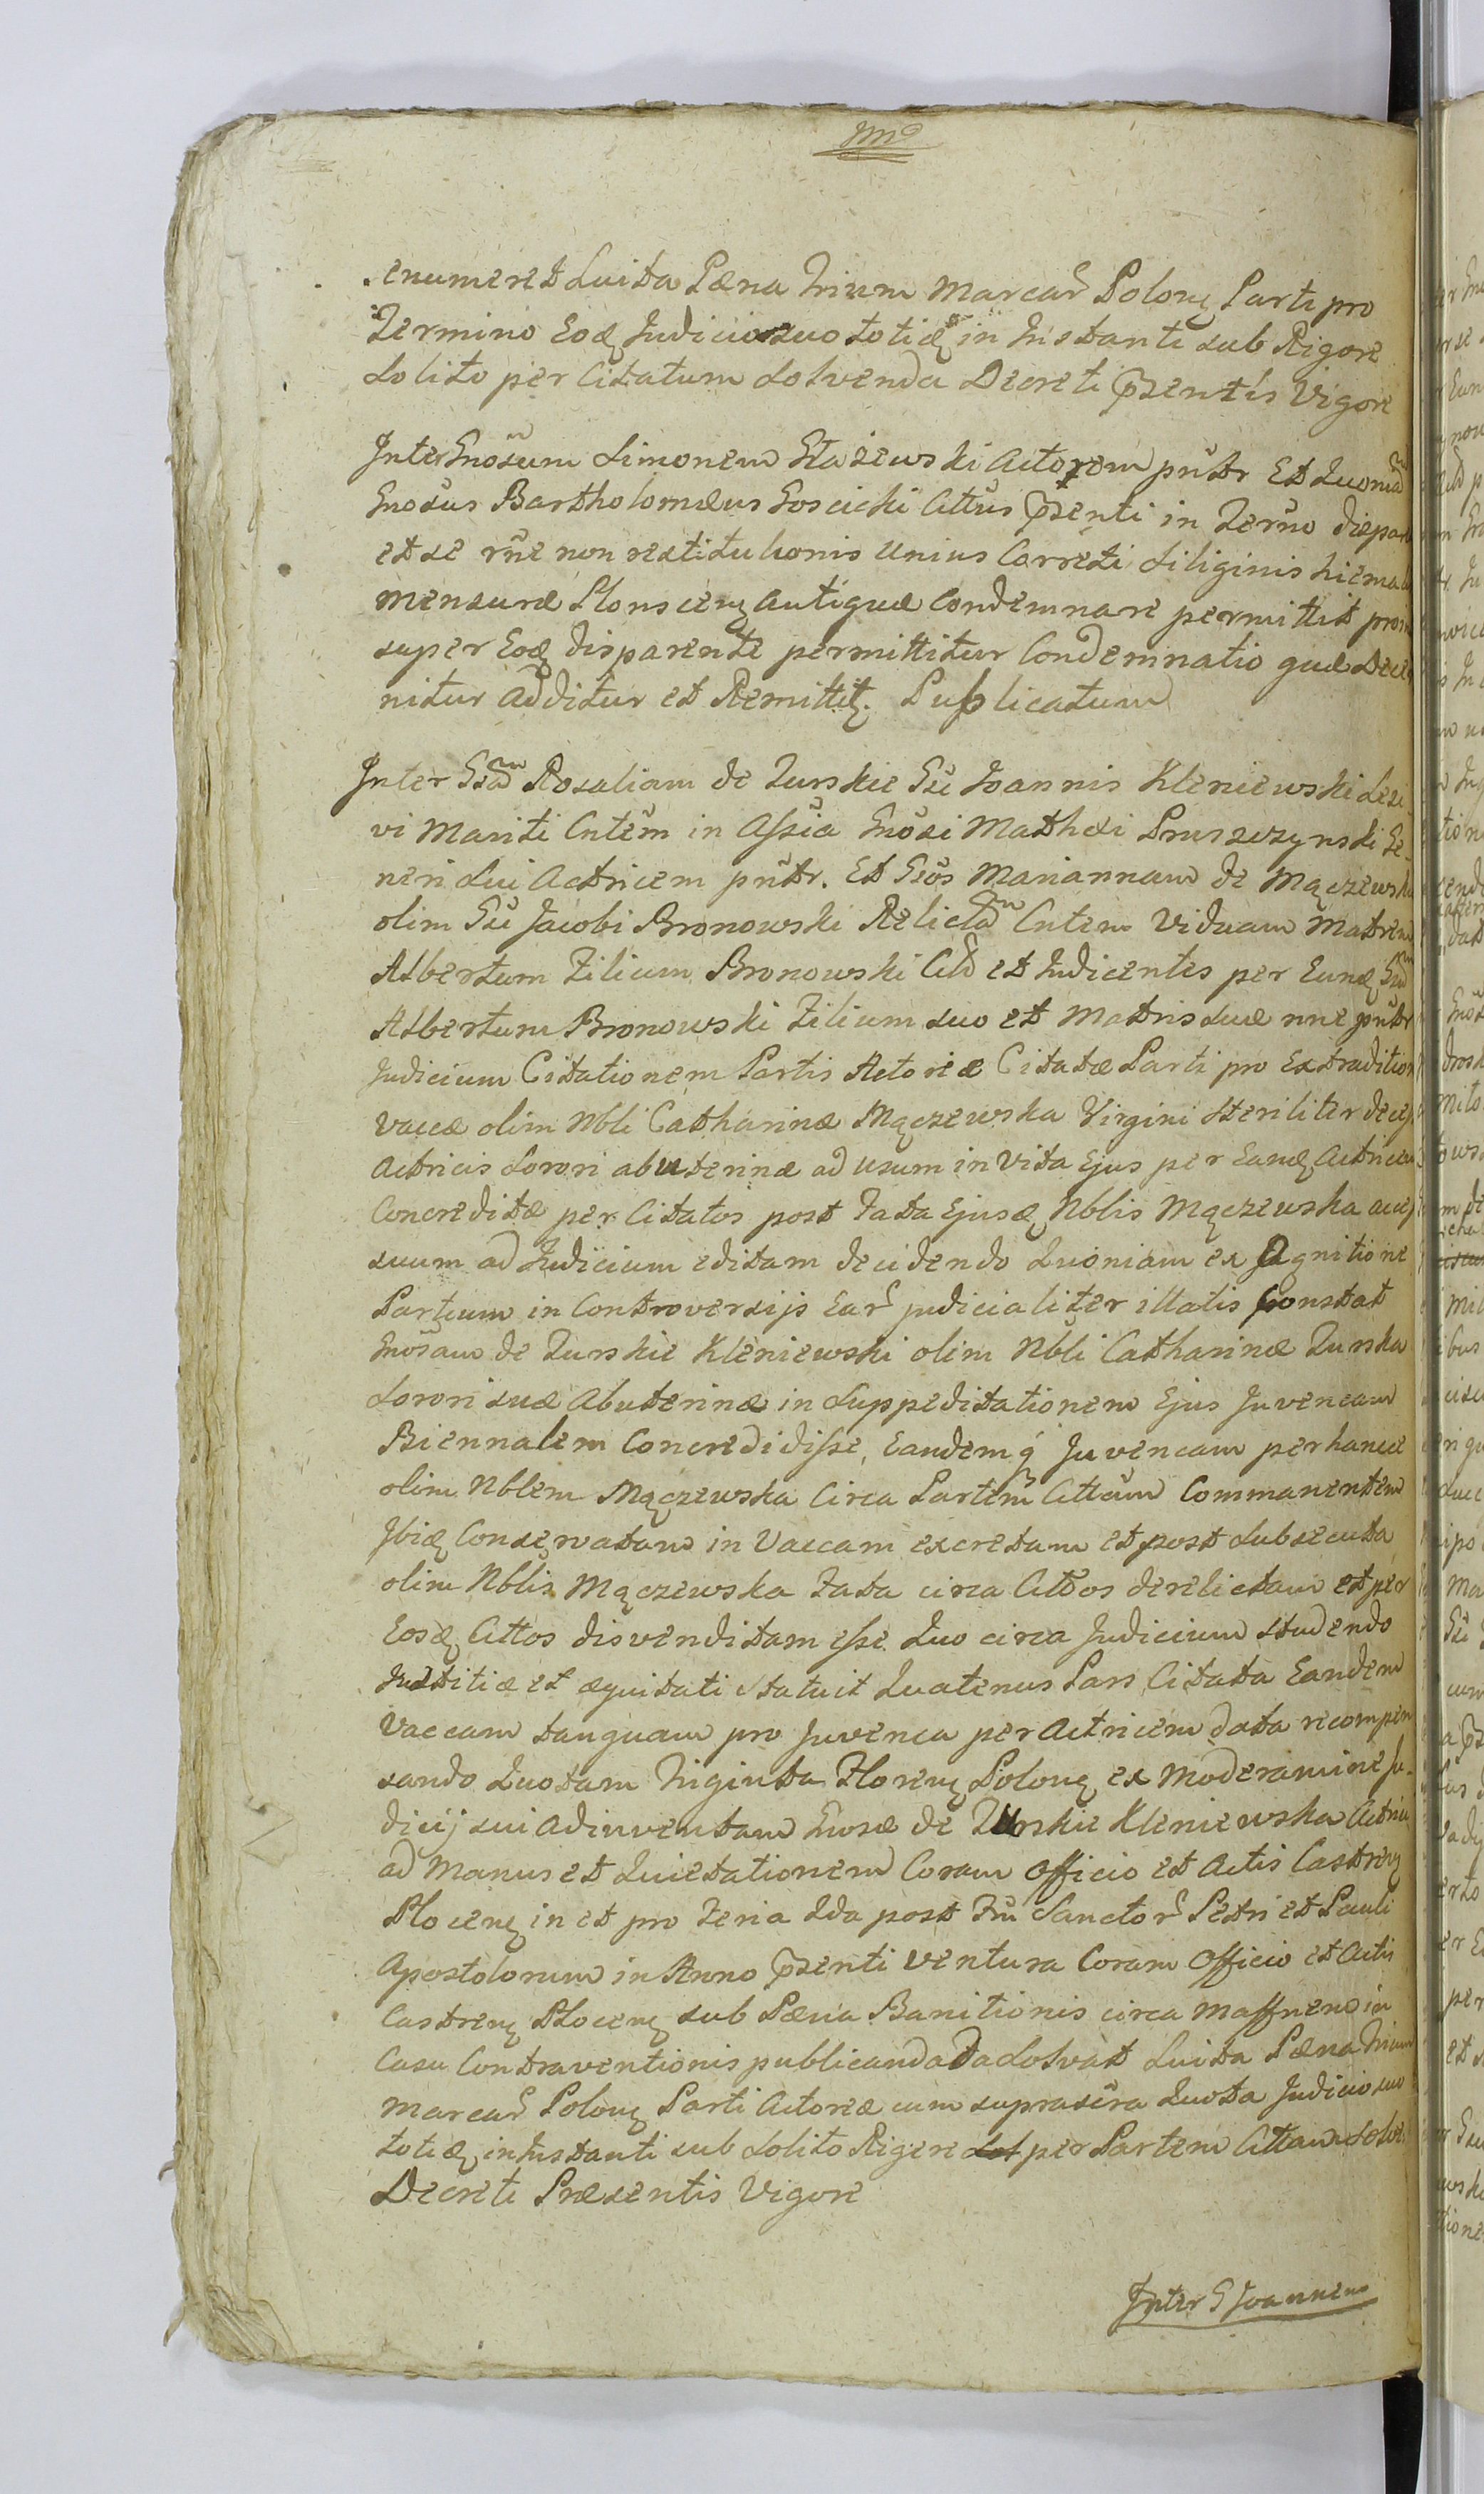 enumeret Luita Pæna trium Marcar Polonꝫ Parti pro
Termino Eoqꝫ Judicio suo totiqꝫ in Instanti sub Rigore
Solito per Citatum Solvenda Decreti Pzentis Vigore
Inter Gnosum Simonem Stazewski Actorem pnttr Et Quoniam
Gnosus Bartholomæus Goscicki Cittus Pzenti in Termo dispar
et se rne non restitutionis Unius Correti Siliginis hiema
Mensuræ Plonscenꝫ Antiquæ Condemnare permittit proin
super Eoqꝫ disparente permittitur Condemnatio quæ Decer
nitur additur et Remittitꝫ. Publicatum
Inter Gsam Rosaliam de Turskie Gsi Joannis Kleniewski Lesi
vi Mariti Cntem in Assia Gnosi Mathæi Pruszczynski Ge
neri Sui Actricem pnttr. Et Gsos Mariannam de Mączewsk
olim Gsi Jacobi Bronowski Relictam Cntem Viduam Matrem
Albertum Filium Bronowski Citt et Judicentes per Eunqꝫ Gsum
Albertum Bronowski Filium suo et Matris suæ nne pnttr
Judicium Citationem Partis Actoreæ Citatæ Parti pro Extradition
Vaccæ olim Nbli Catharinæ Mączewska Virgini Steriliter decess
Actricis Sorori abuterinæ ad usum in Vita Ejus per Eanqꝫ Actricem
Concreditæ per Citatos post Fata Ejusqꝫ Nblis Mączewska accep
suum ad Judicium editam decidendo Quoniam ex Agnitione
Partium in Controversijs Ear judicialiter illatis Constat
Gnosam de Turskie Kleniewski olim Nbli Catharinæ Turska
Sorori suæ Abuterinæ in Suppeditationem Ejus Juvencam
Biennalem Concredidisse, Eandemq Juvencam per hancce
olim Nblem Mączewska Circa Partem Cittam Commanentem
Ibiqꝫ Conservatam in Vaccam excretam et post Subsecuta
olim Nblis Mączewska Fata circa Cittos derelictam et per
Eosqꝫ Cittos disvenditam esse Quo circa Judicium studendo
Justitiæ et æquitati Statuit Quatenus Pars Citata Eandem
Vaccam tanquam pro Juvenca per Actricem data recompen
sando Quotam Triginta Florenꝫ Polonꝫ ex Moderamine Ju
dicij sui adinventam Gnosæ de Turskie Kleniewska Actrici
ad Manus et Quietationem Coram Officio et Actis Castrenꝫ
Plocenꝫ in et pro Feria 2da post Fm Sanctor Petri et Pauli
Apostolorum in Anno Pzenti Ventura Coram Officio et Actis
Castrenꝫ Plocenꝫ sub Pæna Banitionis circa Maffneno in
Casu Contraventionis publicanda da Solvat Luita Pæna trium
Marcar Polonꝫ Parti Actoreæ cum suprascra Quota Judicio suo
totiqꝫ in Instanti sub Solito Rigore Sol per Partem Cittam Solve
Decreti Præsentis Vigore
Inter G Joannem